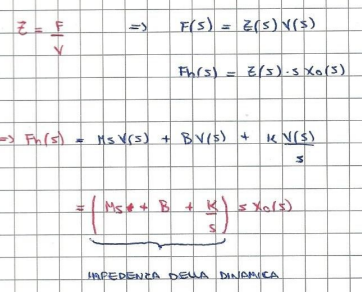 Z = F/V => F(s) = Z(s) V(s)
Fh(s) = Z(s) · s X0(s)
=> Fh(s) = MsV(s) + BV(s) + K V(s)/s
= (Ms + B + K/s) s X0(s)
IMPEDENZA DELLA DINAMICA